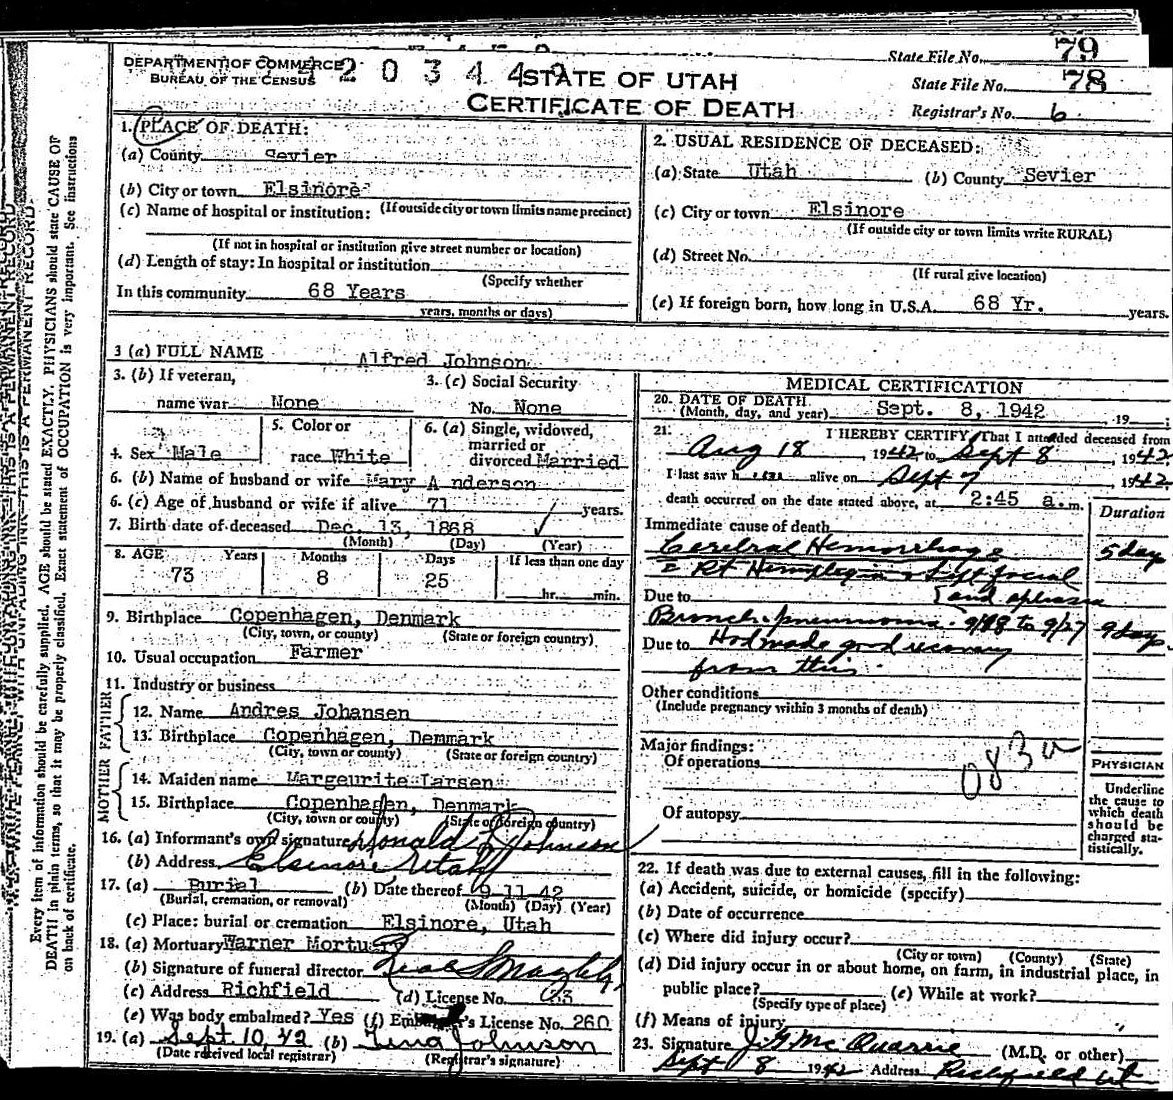 State File No. 79
DEPARTMENT OF COMMERCE
BUREAU OF THE CENSUS
STATE OF UTAH
State File No. 78
CERTIFICATE OF DEATH
Registrar's No. 6
1. PLACE OF DEATH:
(a) County Sevier
(b) City or town Elsinore
(If outside city or town limits name precinct)
(c) Name of hospital or institution:
(If not in hospital or institution give street number or location)
(d) Length of stay: In hospital or institution
(Specify whether
In this community 68 Years
years, months or days)
2. USUAL RESIDENCE OF DECEASED:
(a) State Utah (b) County Sevier
(c) City or town Elsinore
(If outside city or town limits write RURAL)
(d) Street No.
(If rural give location)
(e) If foreign born, how long in U.S.A. 68 Yr. years.
3 (a) FULL NAME Alfred Johnson
3. (b) If veteran,
name war None
3. (c) Social Security
No. None
4. Sex Male
5. Color or
race White
6. (a) Single, widowed,
married or
divorced Married
6. (b) Name of husband or wife Mary A nderson
6. (c) Age of husband or wife if alive 71 years.
7. Birth date of deceased Dec. 13, 1868
(Month) (Day) (Year)
8. AGE Years Months Days If less than one day
73 8 25 hr. min.
9. Birthplace Copenhagen, Denmark
(City, town, or county) (State or foreign country)
10. Usual occupation Farmer
11. Industry or business
FATHER
12. Name Andres Johansen
13. Birthplace Copenhagen, Denmark
(City, town or county) (State or foreign country)
MOTHER
14. Maiden name Margeurite Larsen
15. Birthplace Copenhagen, Denmark
(City, town or county) (State or foreign country)
16. (a) Informant's own signature Donald Johnson
(b) Address Elsinore, Utah
17. (a) Burial (b) Date thereof 9 11 42
(Burial, cremation, or removal) (Month) (Day) (Year)
(c) Place: burial or cremation Elsinore, Utah
18. (a) Mortuary Warner Mortuary
(b) Signature of funeral director
(c) Address Richfield (d) License No.
(e) Was body embalmed? Yes (f) Embalmer's License No. 260
19. (a) Sept 10, 42 (b) Tena Johnson
(Date received local registrar) (Registrar's signature)
MEDICAL CERTIFICATION
20. DATE OF DEATH
(Month, day, and year) Sept. 8, 1942, 19
21. I HEREBY CERTIFY, That I attended deceased from
Aug 18, 1942 to Sept 8 1942
I last saw h alive on Sept 7 1942
death occurred on the date stated above, at 2:45 a.m.
Duration
Immediate cause of death
Cerebral Hemorrhage 5 day
Rt Hemiplegia & Left facial
Due to and aphasia
Broncho pneumonia 9 days
Due to Had made good recovery
from this
Other conditions
(Include pregnancy within 3 months of death)
Major findings:
Of operations
Of autopsy
PHYSICIAN
Underline
the cause to
which death
should be
charged sta-
tistically.
22. If death was due to external causes, fill in the following:
(a) Accident, suicide, or homicide (specify)
(b) Date of occurrence
(c) Where did injury occur?
(City or town) (County) (State)
(d) Did injury occur in or about home, on farm, in industrial place, in
public place? (e) While at work?
(Specify type of place)
(f) Means of injury
23. Signature J. G. McQuarrie (M.D. or other)
Sept 8 1942 Address Richfield Ut
Every item of information should be carefully supplied. AGE should be stated EXACTLY. PHYSICIANS should state CAUSE OF
DEATH in plain terms, so that it may be properly classified. Exact statement of OCCUPATION is very important. See instructions
on back of certificate.